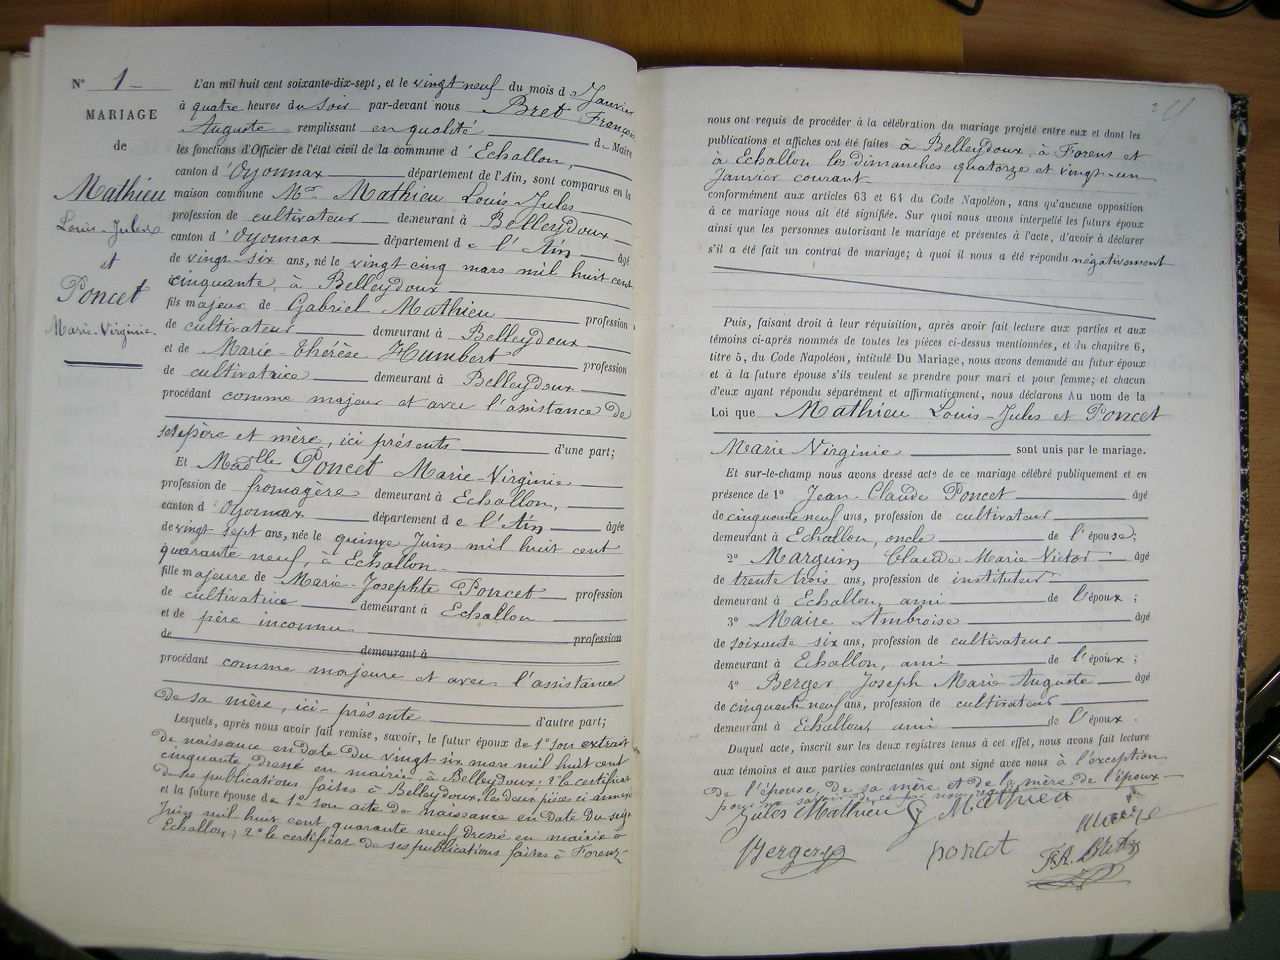 N° 1
MARIAGE
de
Mathieu
Louis-Jules
et
Poncet
Marie-Virginie.
L'an mil huit cent soixante-dix-sept, et le vingt neuf du mois d e Janvier
à quatre heures du Soir par-devant nous Bret François
Auguste remplissant en qualité d e Maire
les fonctions d'Officier de l'état civil de la commune d' Echallon,
canton d' Oyonnax département de l'Ain, sont comparus en la
maison commune Mr Mathieu Louis-Jules
profession de cultivateur demeurant à Belleydoux
canton d' Oyonnax département d e l'Ain âgé
de vingt-six ans, né le vingt cinq mars mil huit cent
cinquante, à Belleydoux
fils majeur de Gabriel Mathieu profession
de cultivateur demeurant à Belleydoux
et de Marie-Thérèse Humbert profession
de cultivatrice demeurant à Belleydoux
procédant comme majeur et avec l'assistance de
ses père et mère, ici présents d'une part;
Et Madlle Poncet Marie-Virginie
profession de fromagère demeurant à Echallon,
canton d' Oyonnax département d e l'Ain âgée
de vingt sept ans, née le quinze Juin mil huit cent
quarante neuf, à Echallon
fille majeure de Marie-Josephte Poncet profession
de cultivatrice demeurant à Echallon
et de père inconnu profession
de demeurant à
procédant comme majeure et avec l'assistance
de sa mère, ici-présente d'autre part;
Lesquels, après nous avoir fait remise, savoir, le futur époux de 1° son extrait
de naissance en date du vingt six mars mil huit cent
cinquante, dressé en mairie à Belleydoux; 2° le certificat
de ses publications faites à Belleydoux, les deux pièces ci annexées
et la future épouse de 1° son acte de naissance en date du seize
Juin mil huit cent quarante neuf dressé en mairie à
Echallon; 2° le certificat de ses publications faites à Forens
nous ont requis de procéder à la célébration du mariage projeté entre eux et dont les
publications et affiches ont été faites à Belleydoux, à Forens et
à Echallon les dimanches quatorze et vingt-un
Janvier courant
conformément aux articles 63 et 64 du Code Napoléon, sans qu'aucune opposition
à ce mariage nous ait été signifiée. Sur quoi nous avons interpellé les futurs époux
ainsi que les personnes autorisant le mariage et présentes à l'acte, d'avoir à déclarer
s'il a été fait un contrat de mariage; à quoi il nous a été répondu négativement
Puis, faisant droit à leur réquisition, après avoir fait lecture aux parties et aux
témoins ci-après nommés de toutes les pièces ci-dessus mentionnées, et du chapitre 6,
titre 5, du Code Napoléon, intitulé Du Mariage, nous avons demandé au futur époux
et à la future épouse s'ils veulent se prendre pour mari et pour femme; et chacun
d'eux ayant répondu séparément et affirmativement, nous déclarons Au nom de la
Loi que Mathieu Louis-Jules et Poncet
Marie Virginie sont unis par le mariage.
Et sur-le-champ nous avons dressé acte de ce mariage célébré publiquement et en
présence de 1° Jean-Claude Poncet âgé
de cinquante neuf ans, profession de cultivateur
demeurant à Echallon, oncle de l'épouse;
2° Marguin Claude Marie Victor âgé
de trente trois ans, profession de instituteur
demeurant à Echallon, ami de l'époux ;
3° Maire Ambroise âgé
de soixante six ans, profession de cultivateur
demeurant à Echallon, ami de l'époux ;
4° Berger Joseph Marie Auguste âgé
de cinquante neuf ans, profession de cultivateur
demeurant à Echallon, ami de l'époux .
Duquel acte, inscrit sur les deux registres tenus à cet effet, nous avons fait lecture
aux témoins et aux parties contractantes qui ont signé avec nous à l'exception
de l'épouse, de sa mère et de la mère de l'époux
pour ne savoir
Jules Mathieu G Mathieu
Berger poncet F.A. Bret